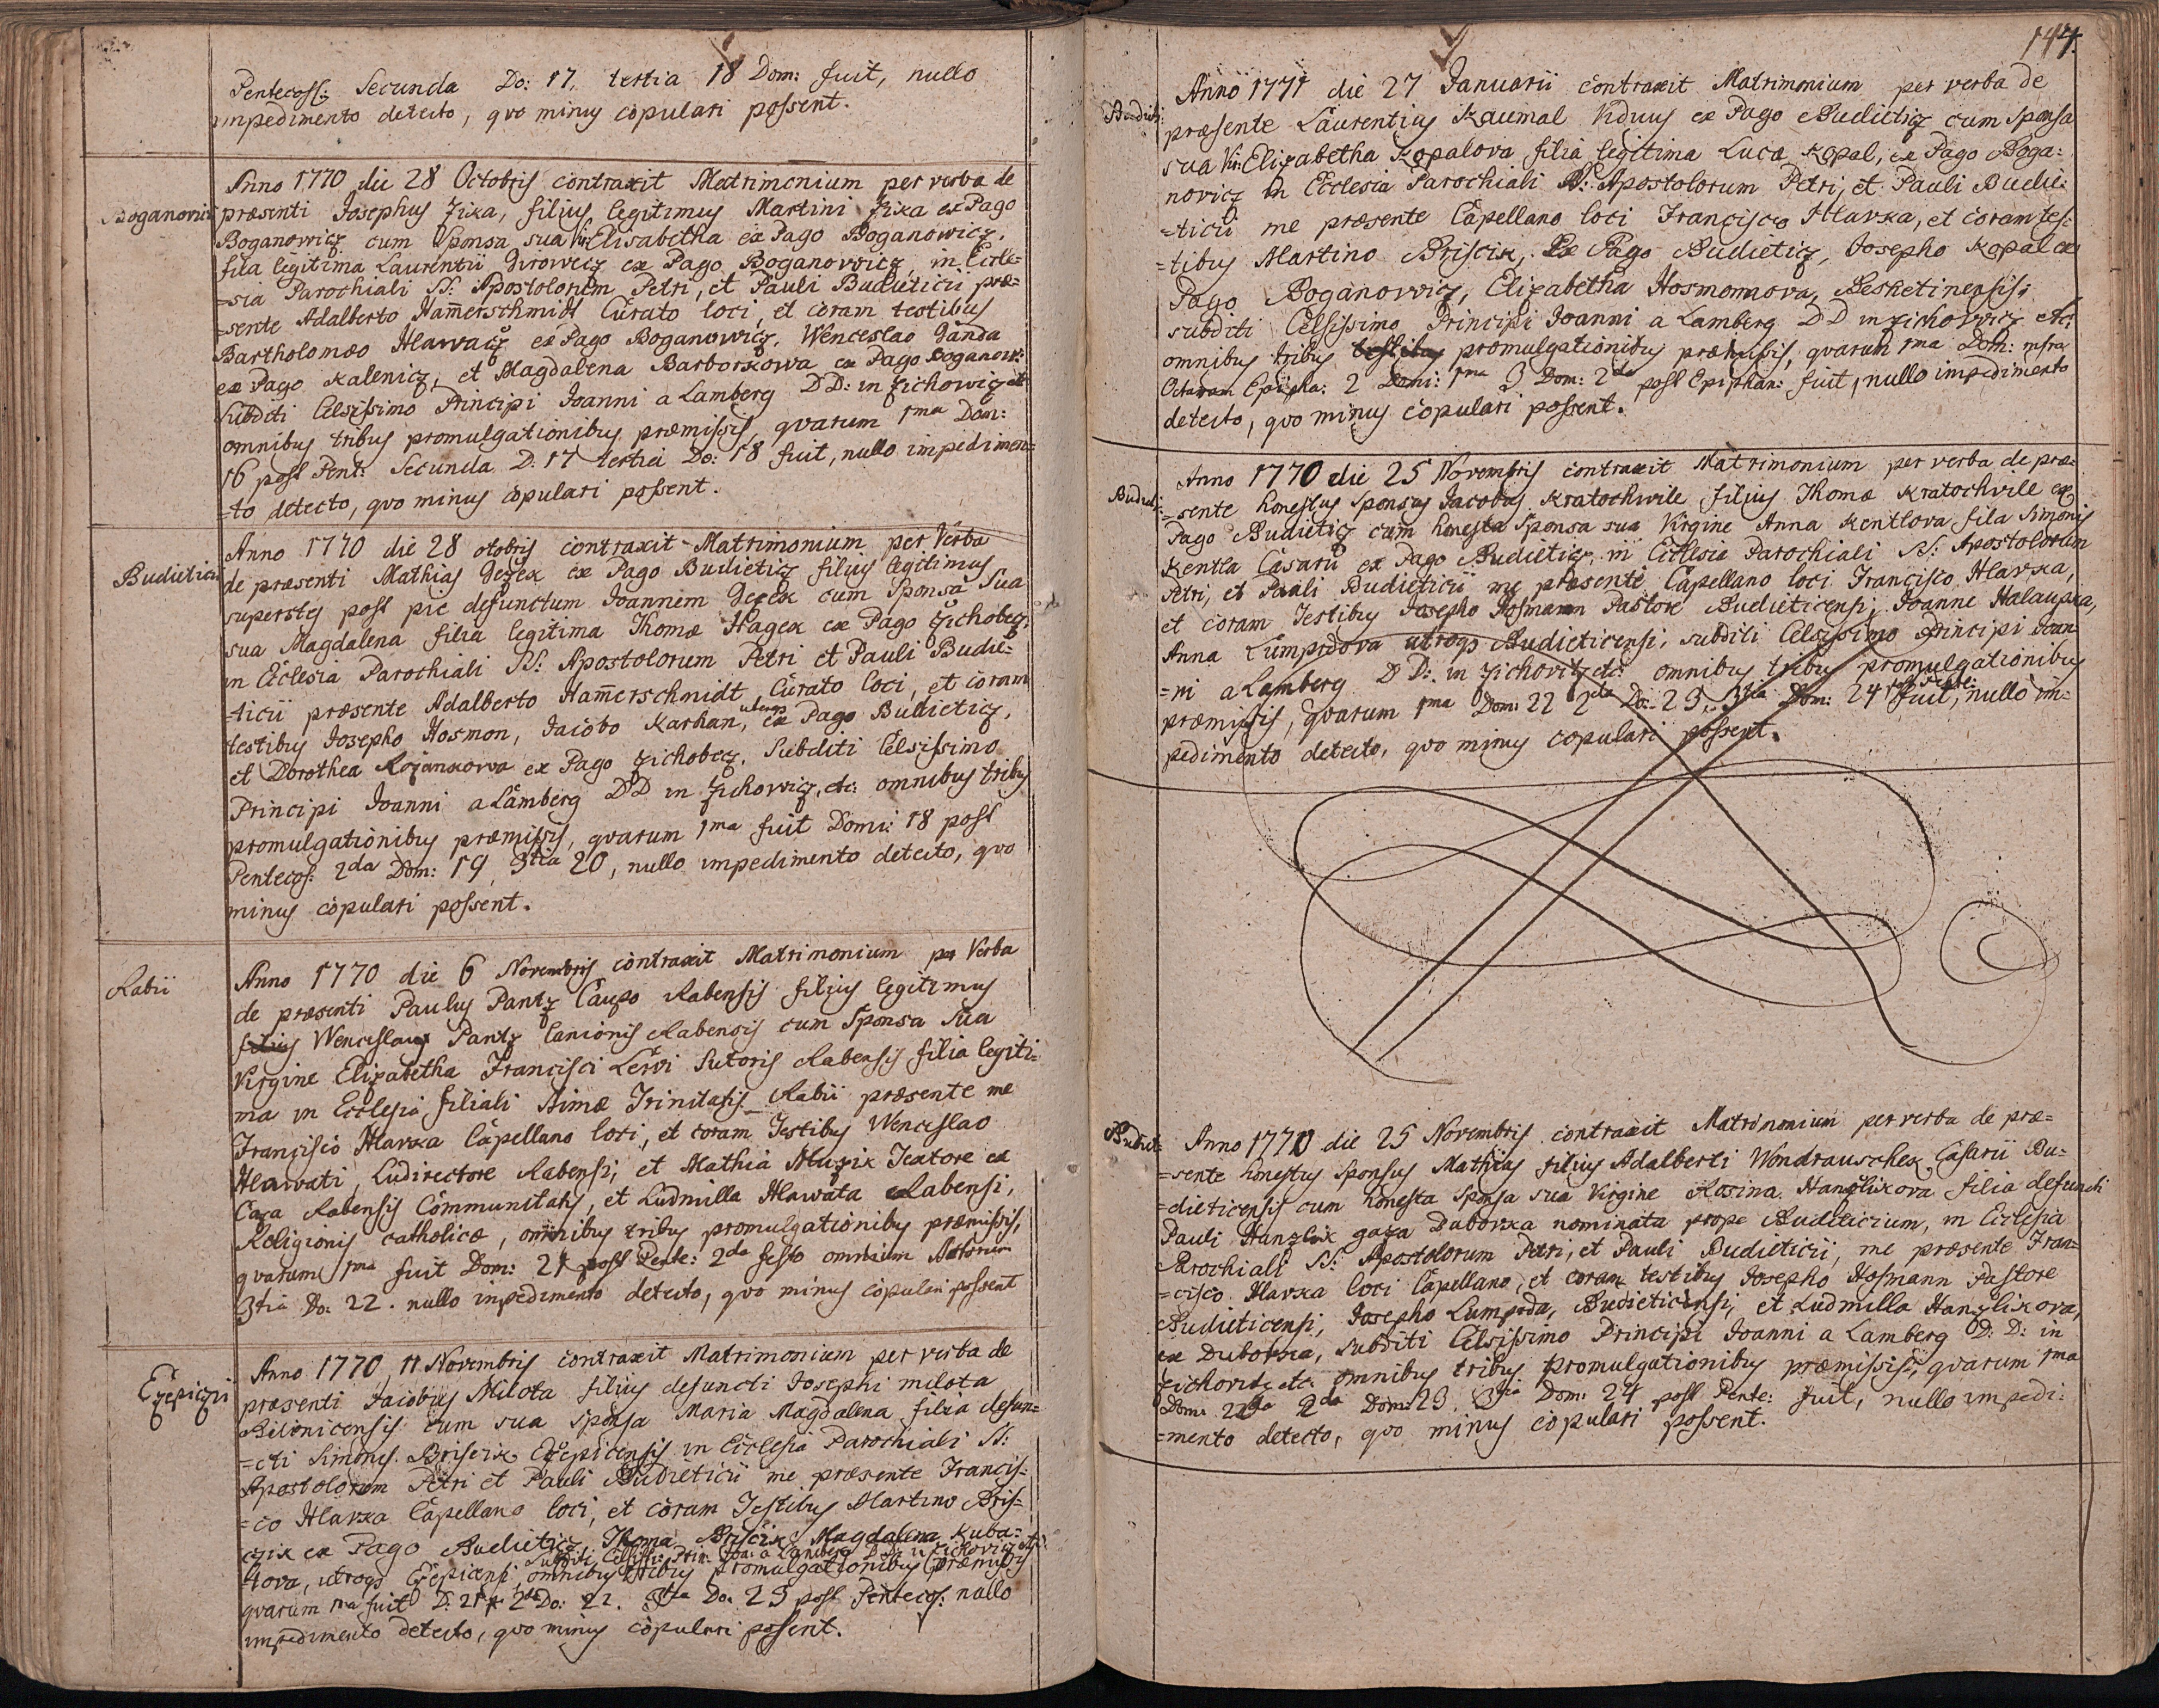 Pentecoss: Secunda Do: 17, tertia 18 Dom: fuit, nullo
impedimento detecto, qvo minus copulari possent.
Boganovicii
Anno 1770 die 28 Octobris contraxit Matrimonium per verba de
præsenti Josephus Zika, filius legitimus Martini Zika ex Pago
Boganowicz cum Sponsa sua Vir: Elisabetha ex Pago Boganowicz,
fila legitima Laurentii Girowecz ex Pago Boganovvicz, in Eccle=
=sia Parochiali SS: Apostolorum Petri, et Pauli Budieticii præ=
=sente Adalberto Ham̄erschmidt Curato loci, et coram testibus
Bartholomæo Hlawacz ex Pago Boganowicz, Wenceslao Ganda
ex Pago Kalenicz, et Magdalena Barborkowa ex Pago Boganow:
Subditi Celsissimo Principi Joanni a Lamberg DD: in Zichowicz etc
omnibus tribus promulgationibus præmissis, qvarum 1ma Dom:
16 post Pent: Secunda D: 17 tertia Do: 18 fuit, nullo impedimen=
=to detecto, qvo minus copulari possent.
Budieticii
Anno 1770 die 28 otobris contraxit Matrimonium per Verba
de præsenti Mathias Gezek ex Pago Budieticz filius legitimus
superstes post pie defunctum Joannem Gezek cum Sponsa Sua
sua Magdalena filia legitima Thomæ Hagek ex Pago Zichobecz,
in Ecclesia Parochiali SS: Apostolorum Petri et Pauli Budie=
ticii præsente Adalberto Ham̄erschmidt, Curato loci, et coram
testibus Josepho Hosmon, Jacobo Karhan, utroqs ex Pago Budieticz,
et Dorothea Rojankowa ex Pago Zichobecz, Subditi Celsissimo
Principi Joanni a Lamberg DD in Zichovvicz, etc: omnibus tribus
promulgationibus præmissis, qvarum 1ma fuit Domi: 18 post
Pentecos: 2da Dom: 19, 3tia 20, nullo impedimento detecto, qvo
minus copulari possent.
Rabii
Anno 1770 die 6 Novembris contraxit Matrimonium per Verba
de præsenti Paulus Pantz Caupo Rabensis filius legitimus
filius Wenceslaus Pantz Lanionis Rabensis cum Sponsa Sua
Virgine Elizabetha Francisci Lervi Sutoris Rabensis filia legiti=
ma in Ecclesia filiali SSimæ Trinitatis Rabii præsente me
Francisco Hlavka Capellano loci, et coram Testibus Wenceslao
Hlawati, Ludirectore Rabensi, et Mathia Muzik Textore ex
Caza Rabensis Communitatis, et Ludmilla Hlawata Rabensi,
Religionis catholicæ, om̄nibus tribus promulgationibus præmissis,
qvarum 1ma fuit Dom: 21 post Pente: 2da festo omnium Sstorum
3tia Do: 22. nullo inpedimento detecto, qvo minus copulari possent
Czepiczii
Anno 1770, 11 Novembris contraxit Matrimonium per verba de
præsenti Jacobus Milota filius defuncti Josephi milota
Bilonicensis cum sua sponsa Maria Magdalena filia defun=
=cti Simonis Briscix Czepicensis in Ecclesia Parochiali SS:
Apostolorum Petri et Pauli Budieticii me præsente Francis=
=co Hlavka Capellano loci, et coram Testibus Martino Bris=
czik ex Pago Budieticz, Thoma Briscix, Magdalena Kuba=
Subditi Celsissi: Prin: Joa: a Lamberg DD: in Zichovicz etc:
tova, utroqs Czepicensi omnibus tribus promulgationibus præmissis
qvarum 1ma fuit D: 21 2da Do: 22. 3tia Do: 23 post Pentecos: nullo
impedimento detecto, qvo minus copulari possent.
147.
Budieti:
Anno 1771 die 27 Januarii contraxit Matrimonium per verba de
præsente Laurentius Kaumal Viduus ex Pago Budieticz cum Sponsa
sua Vir: Elizabetha Kopalova filia legitima Lucæ Kopal, ex Pago Boga=
novicz in Ecclesia Parochiali SS: Apostolorum Petri, et Pauli Budie=
=ticii me præsente Capellano loci Francisco Hlavka, et coram tes=
=tibus Martino Briscik, Ex Pago Budieticz, Josepho Kopal ex
Pago Boganovvicz, Elizabetha Hosmonnova, Beshetinensis;
subditi Celsissimo Principi Joanni a Lamberg DD in Zichovvicz etc:
omnibus tribus testibus promulgationibus præmissis, qvarum 1ma Dom: infra
Octavam Epipha: 2 Domi: 1ma 3 Dom: 2da post Epiphan: fuit, nullo impedimento
detecto, qvo minus copulari possent.
Budieti:
Anno 1770 die 25 Novembris contraxit Matrimonium per verba de præ=
=sente honestus Sponsus Jacobus Kratochwile filius Thomæ Kratochvile ex
Pago Budieticz cum honesta Sponsa sua Virgine Anna Kentlova fila Simonis
Kentla Casarii ex Pago Budieticz, in Ecclesia Parochiali SS: Apostolorum
Petri, et Pauli Budieticii me præsente Capellano loci Francisco Hlavka,
et coram Testibus Josepho Hosmann Pastore Budieticensi, Joanne Halaupka,
Anna Lumpidova utroqs Budieticensi, subditi Celsissimo Principi Joan=
=ni a Lamberg DD: in Zichovitz etc: omnibus tribus promulgationibus
præmissis, qvarum 1ma Dom: 22 2da Do: 23, 3tia Dom: 24 post Pente: fuit, nullo im=
pedimento detecto, qvo minus copulari possent.
Budieti:
Anno 1770 die 25 Novembris contraxit Matrimonium per verba de præ=
=sente honestus Sponsus Mathias filius Adalberti Wondrauschek, Casarii Bu=
=dieticensis cum honesta Sponsa sua Virgine Rosina Hanzlikova filia defuncti
Pauli Hanzlik gaza Duborka nominata prope Budieticium, in Ecclesia
Parochiali SS: Apostolorum Petri, et Pauli Budieticii, me præsente Fran=
=cisco Hlavka loci Capellano, et coram testibus Josepho Hosmann Pastore
Budieticensi, Josepho Lumpeda, Budieticensi, et Ludmilla Hanzlikova,
ex Duborka, subditi Celsissimo Principi Joanni a Lamberg D: D: in
Zichovitz etc: omnibus tribus promulgationibus præmissis, qvarum 1ma
Dom: 22 2da Dom: 23. 3tia Dom: 24 post Pente: fuit, nullo impedi=
=mento detecto, qvo minus copulari possent.